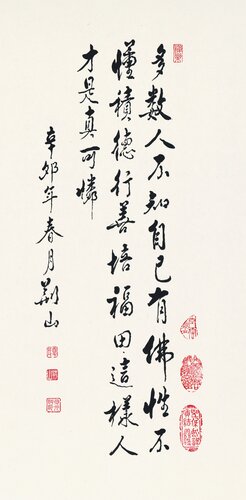 多数人不知自己有佛性不
懂積德行善培福田這樣人
才是真可憐
辛卯年春月荊山